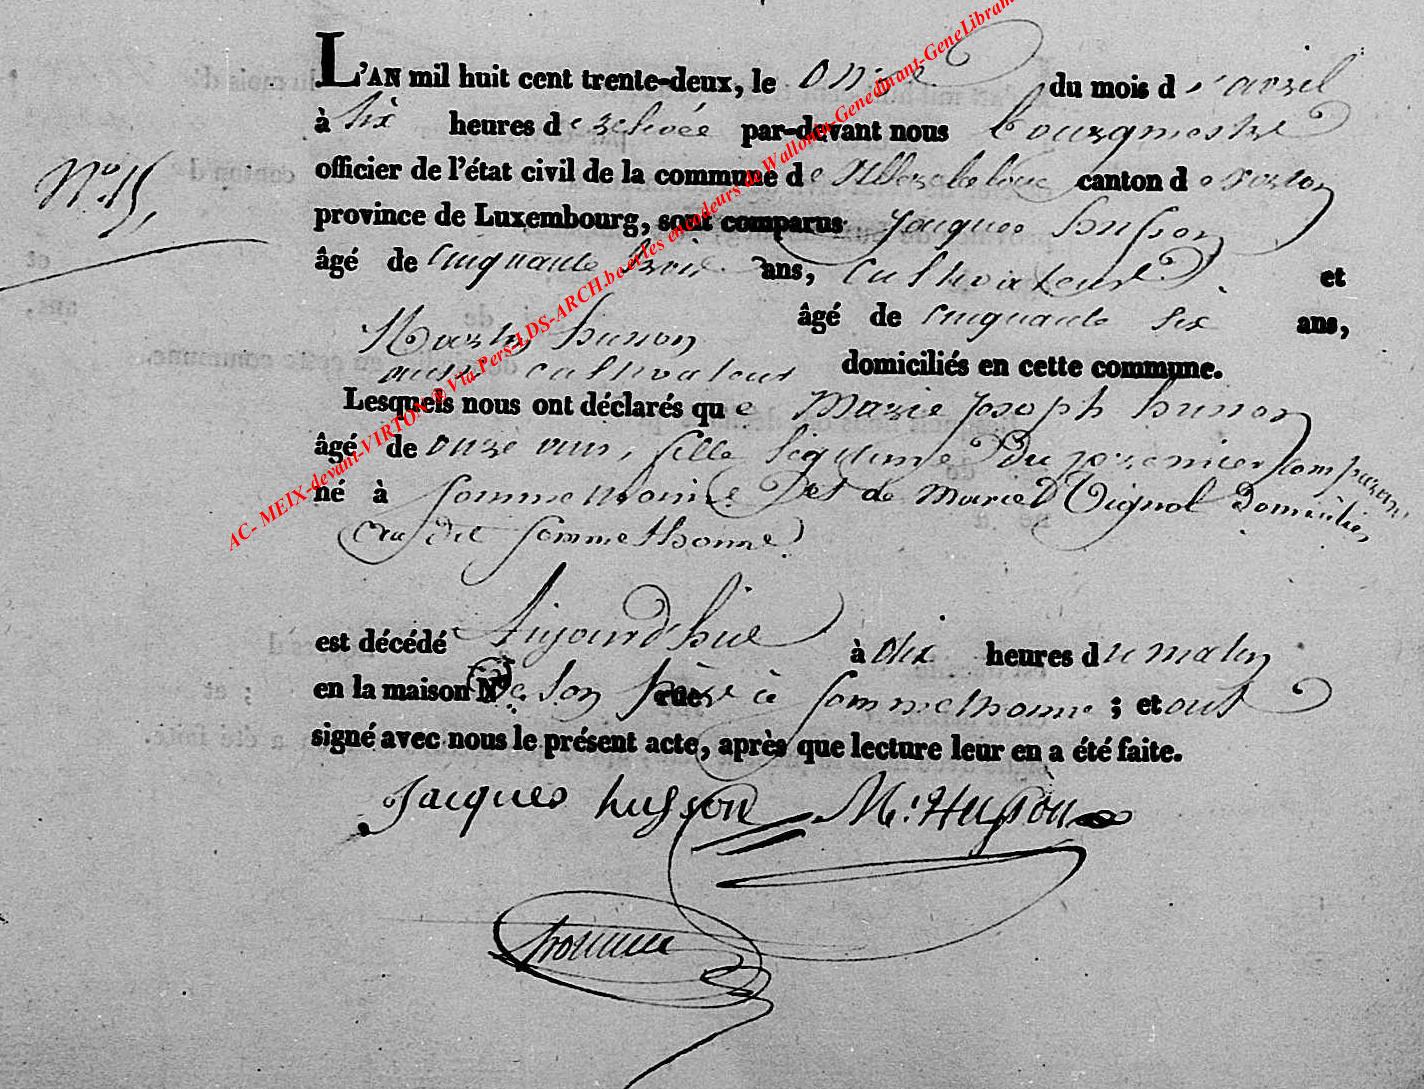 L'AN mil huit cent trente-deux, le onze du mois d'avril
à six heures de relevée par-devant nous bourgmestre
N.o 15,
officier de l'état civil de la commune de canton de virton
province de Luxembourg, sont comparus Jacques husson
âgé de cinquante trois ans, cultivateur et
Martin husson âgé de cinquante six ans,
aussi cultivateur domiciliés en cette commune.
Lesquels nous ont déclarés que Marie Joseph husson
âgé de onze ans, fille légitime du premier comparant
né à Sommethonne et de Marie Vignol domiciliés
au dit Sommethonne
est décédé Aujourd'hui à dix heures du matin
en la maison de son père à Sommethonne ; et ont
signé avec nous le présent acte, après que lecture leur en a été faite.
Jacques husson M. Husson
AC- MEIX-devant-VIRTON ® Via Pers-LDS-ARCH.be et les encodeurs de Wallonia-Genedinant-GeneLibram